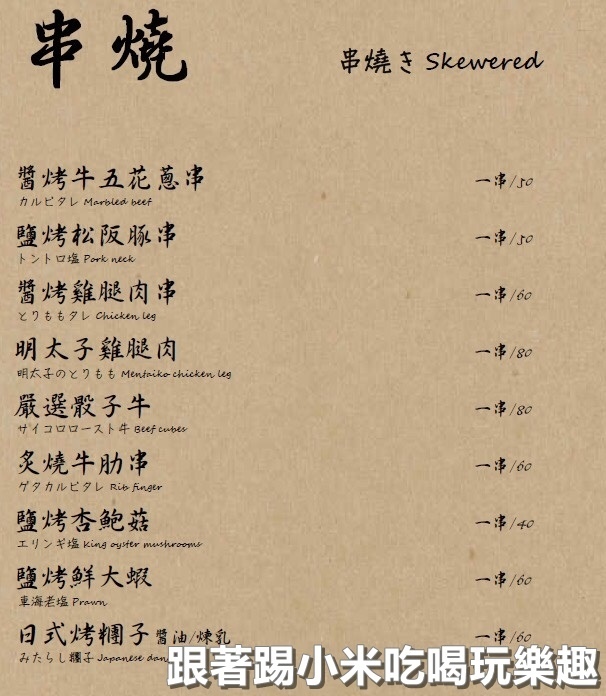 串燒
串燒き Skewered
醬烤牛五花蔥串 一串/50
カルビタレ Marbled beef
鹽烤松阪豚串 一串/50
トントロ塩 Pork neck
醬烤雞腿肉串 一串/60
とりももタレ Chicken leg
明太子雞腿肉 一串/80
明太子のとりもも Mentaiko chicken leg
嚴選骰子牛 一串/80
サイコロロースト牛 Beef cubes
炙燒牛肋串 一串/60
ゲタカルビタレ Rib finger
鹽烤杏鮑菇 一串/40
エリンギ塩 King oyster mushrooms
鹽烤鮮大蝦 一串/60
車海老塩 Prawn
日式烤糰子 醬油/煉乳 一串/60
みたらし糰子 Japanese
跟著踢小米吃喝玩樂趣